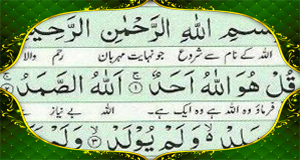 بِسْمِ اللهِ الرَّحْمٰنِ الرَّحِيْمِ
اللہ کے نام سے شروع جو نہایت مہربان رحم والا
قُلْ هُوَ اللهُ اَحَدٌ ۝۱ اَللهُ الصَّمَدُ ۝۲
فرماؤ وہ اللہ ہے وہ ایک ہے۔ اللہ بے نیاز
يَلِدْ ۙ وَلَمْ يُوْلَدْ ۝۳ وَلَمْ